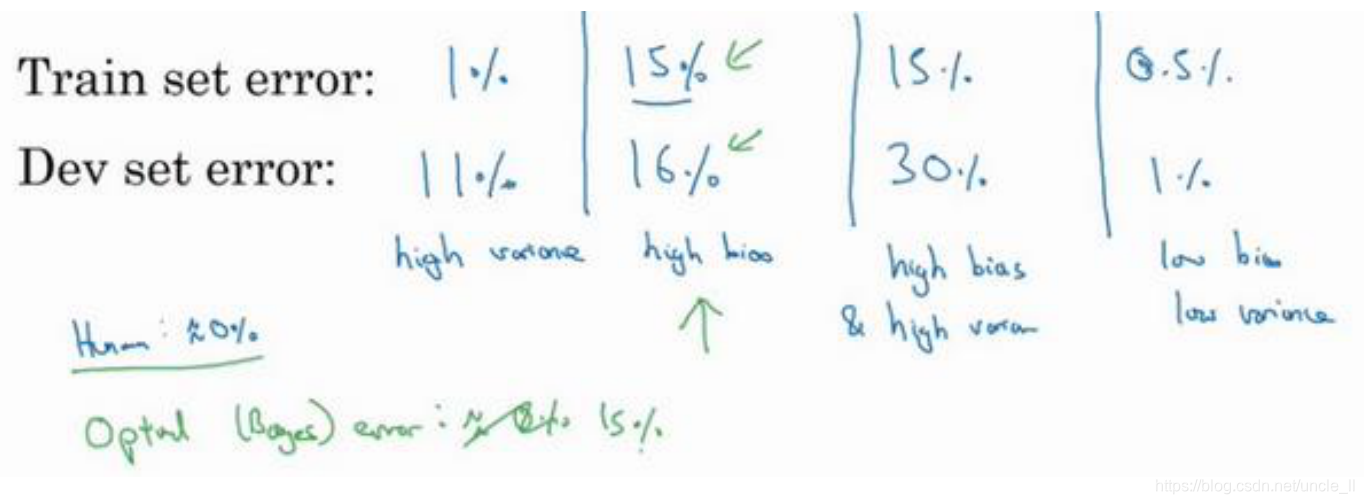 Train set error: 1% 15% 15% 0.5%
Dev set error: 11% 16% 30% 1%
high variance high bias high bias low bias
& high varian low variance
Human: ≈0%
Optimal (Bayes) error: ≈0% 15%
https://blog.csdn.net/uncle_ll